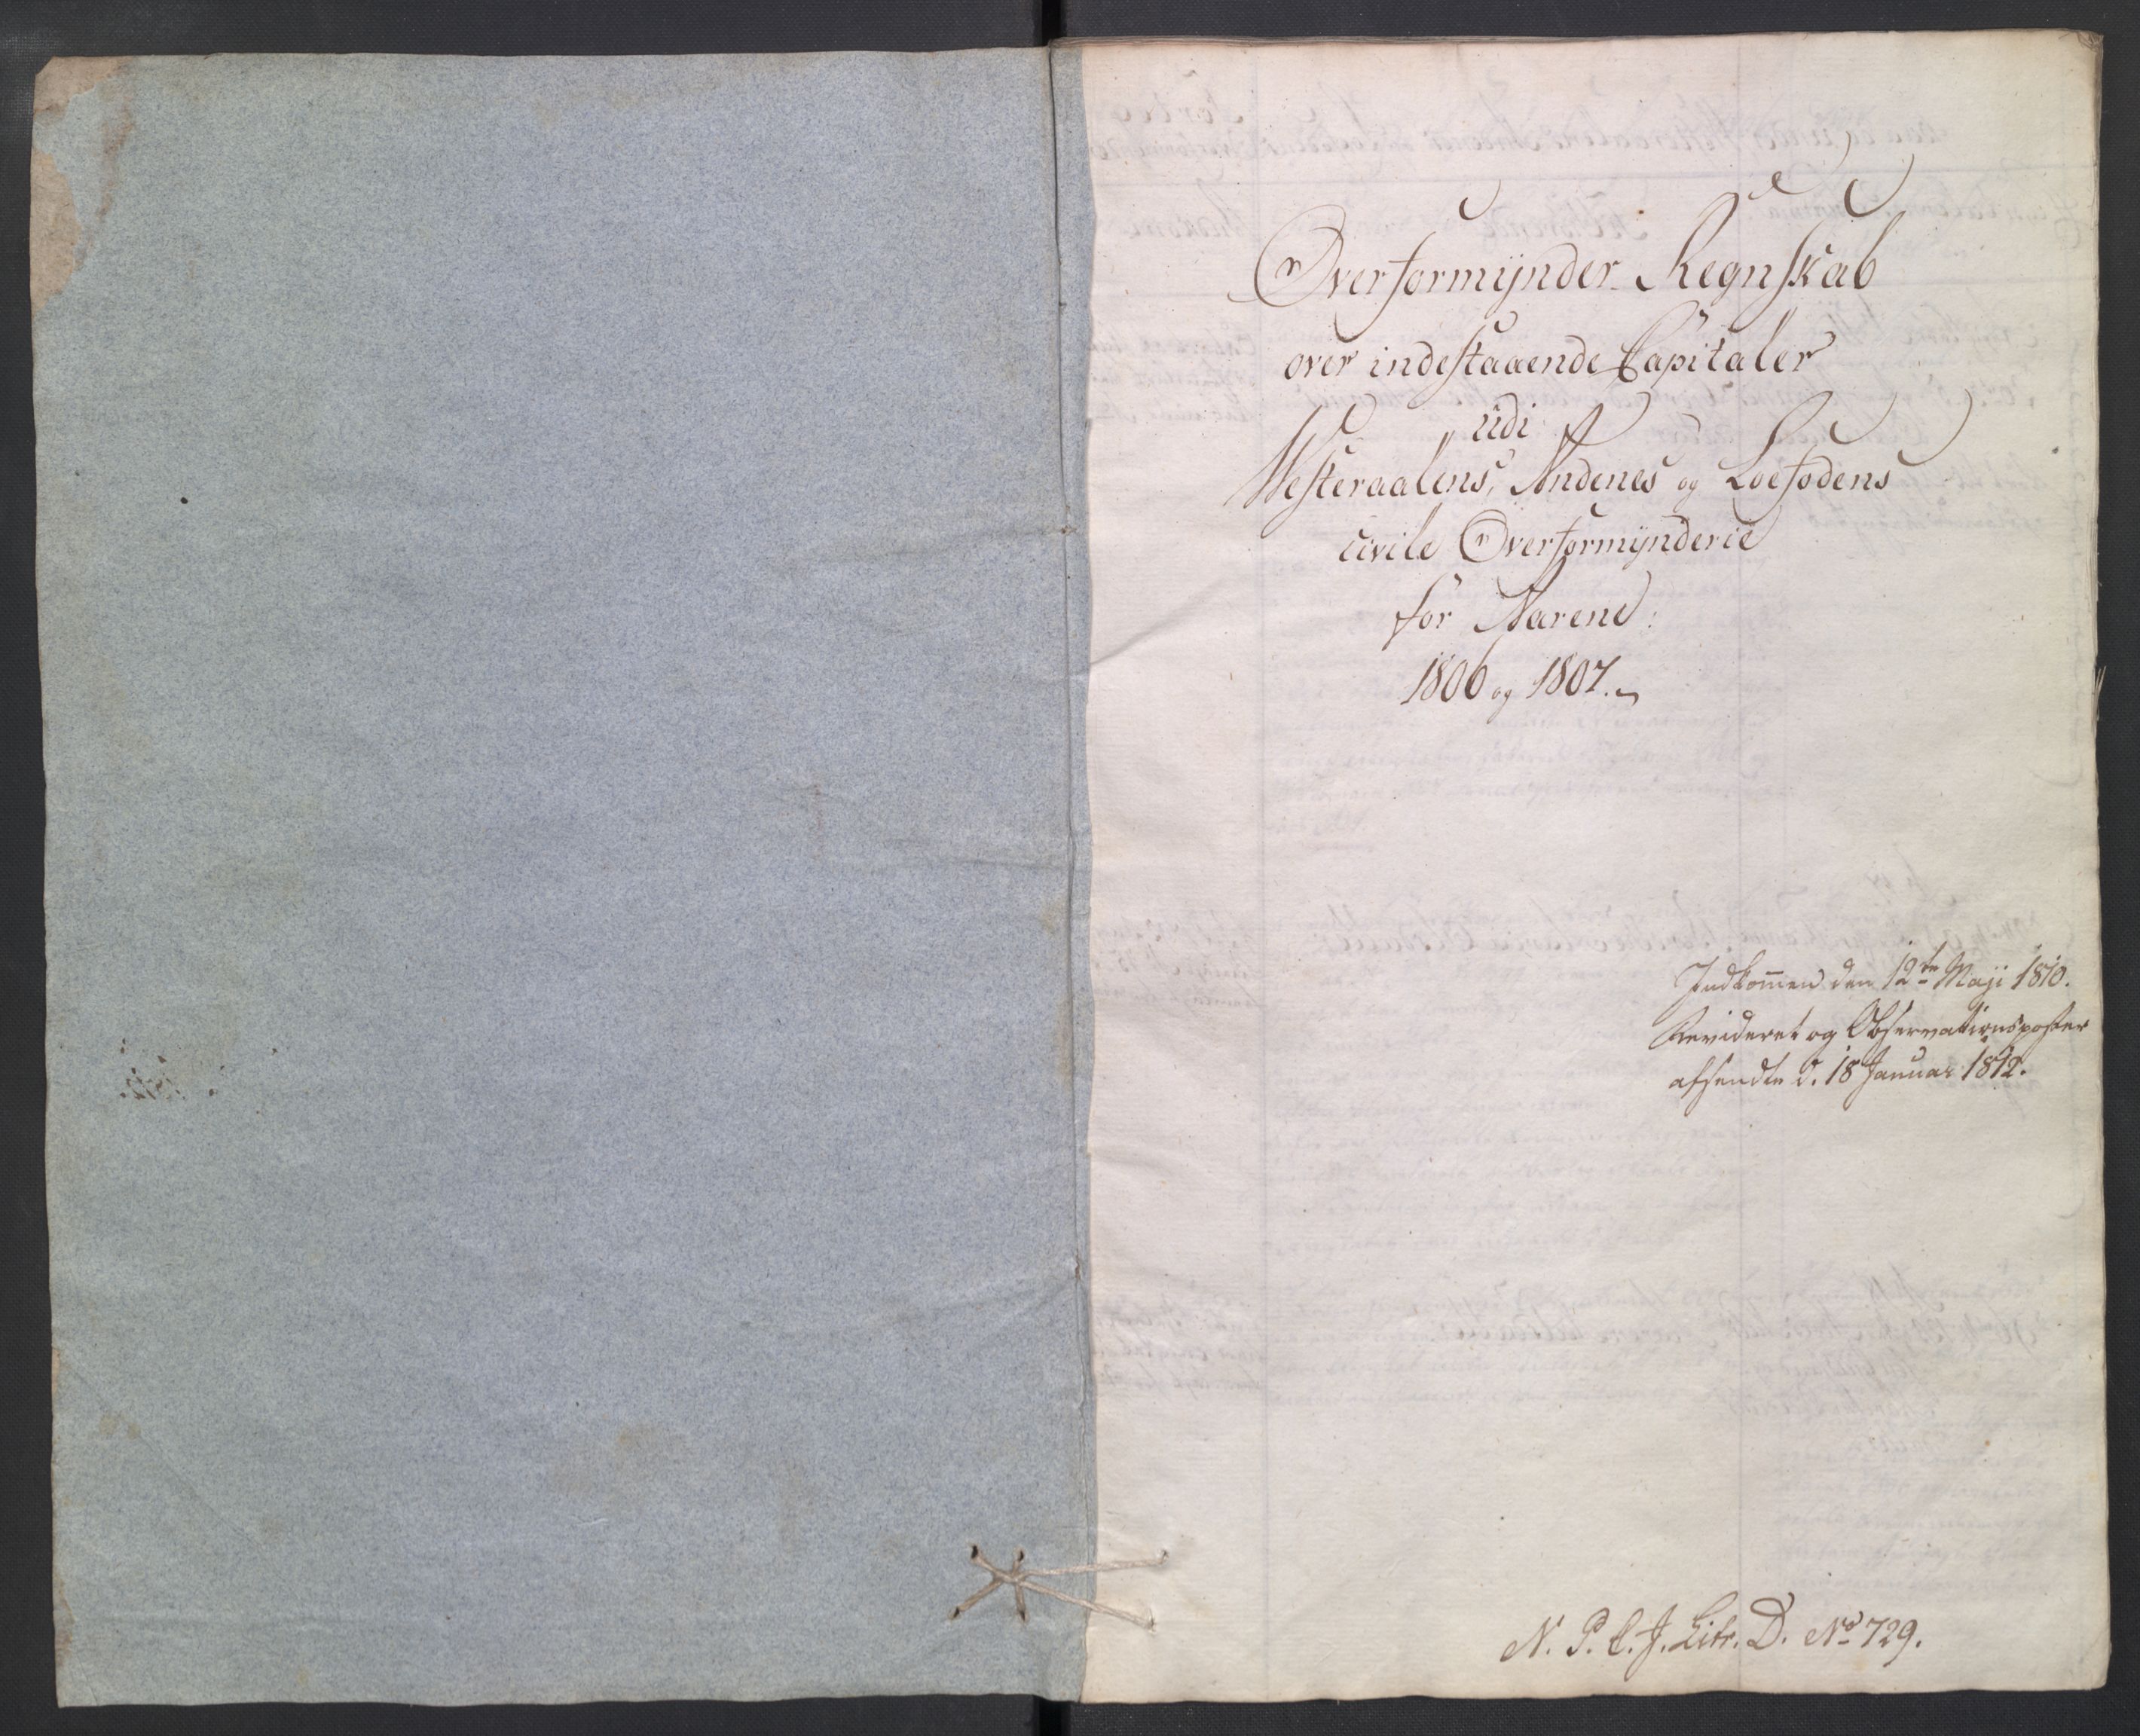 Overformynder Regnskab
over indestaaende Capitaler
udi
Westeraalens, Andenes og Loefodens
civile Overformynderie
for Aarene
1806 og 1807.
Indkom̅en den 12te Maji 1810.
Revideret og Observationsposter
afsendte d. 18 Januar 1812.
N. P. C. J. Litr. D. No 729.